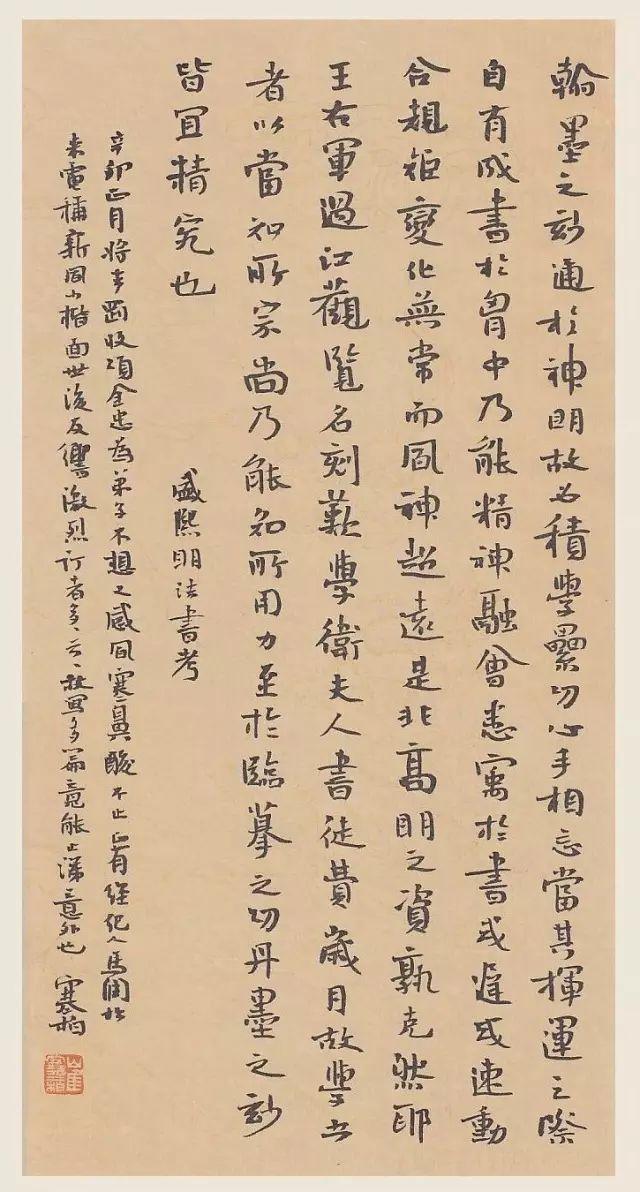 翰墨之妙通於神明故必積學累功心手相忘當其揮運之際
自有成書於胷中乃能精神融會悉寓於書或遲或速動
合規矩變化無常而風神超遠是非高明之資孰克然耶
王右軍過江觀覧名刻歎學衛夫人書徒費歲月故學書
者以當知所宗尚乃能知所用力至於臨摹之功丹墨之妙
皆宜精究也
盛熙明法書考
辛卯正月將去國收項金忠為弟子不想又感風寒鼻酸不止正有經紀人馬國
来電稱新同小楷面世後反響激烈訂者多多云云多篇竟能止涕意外也 寒柏
崔寒柏